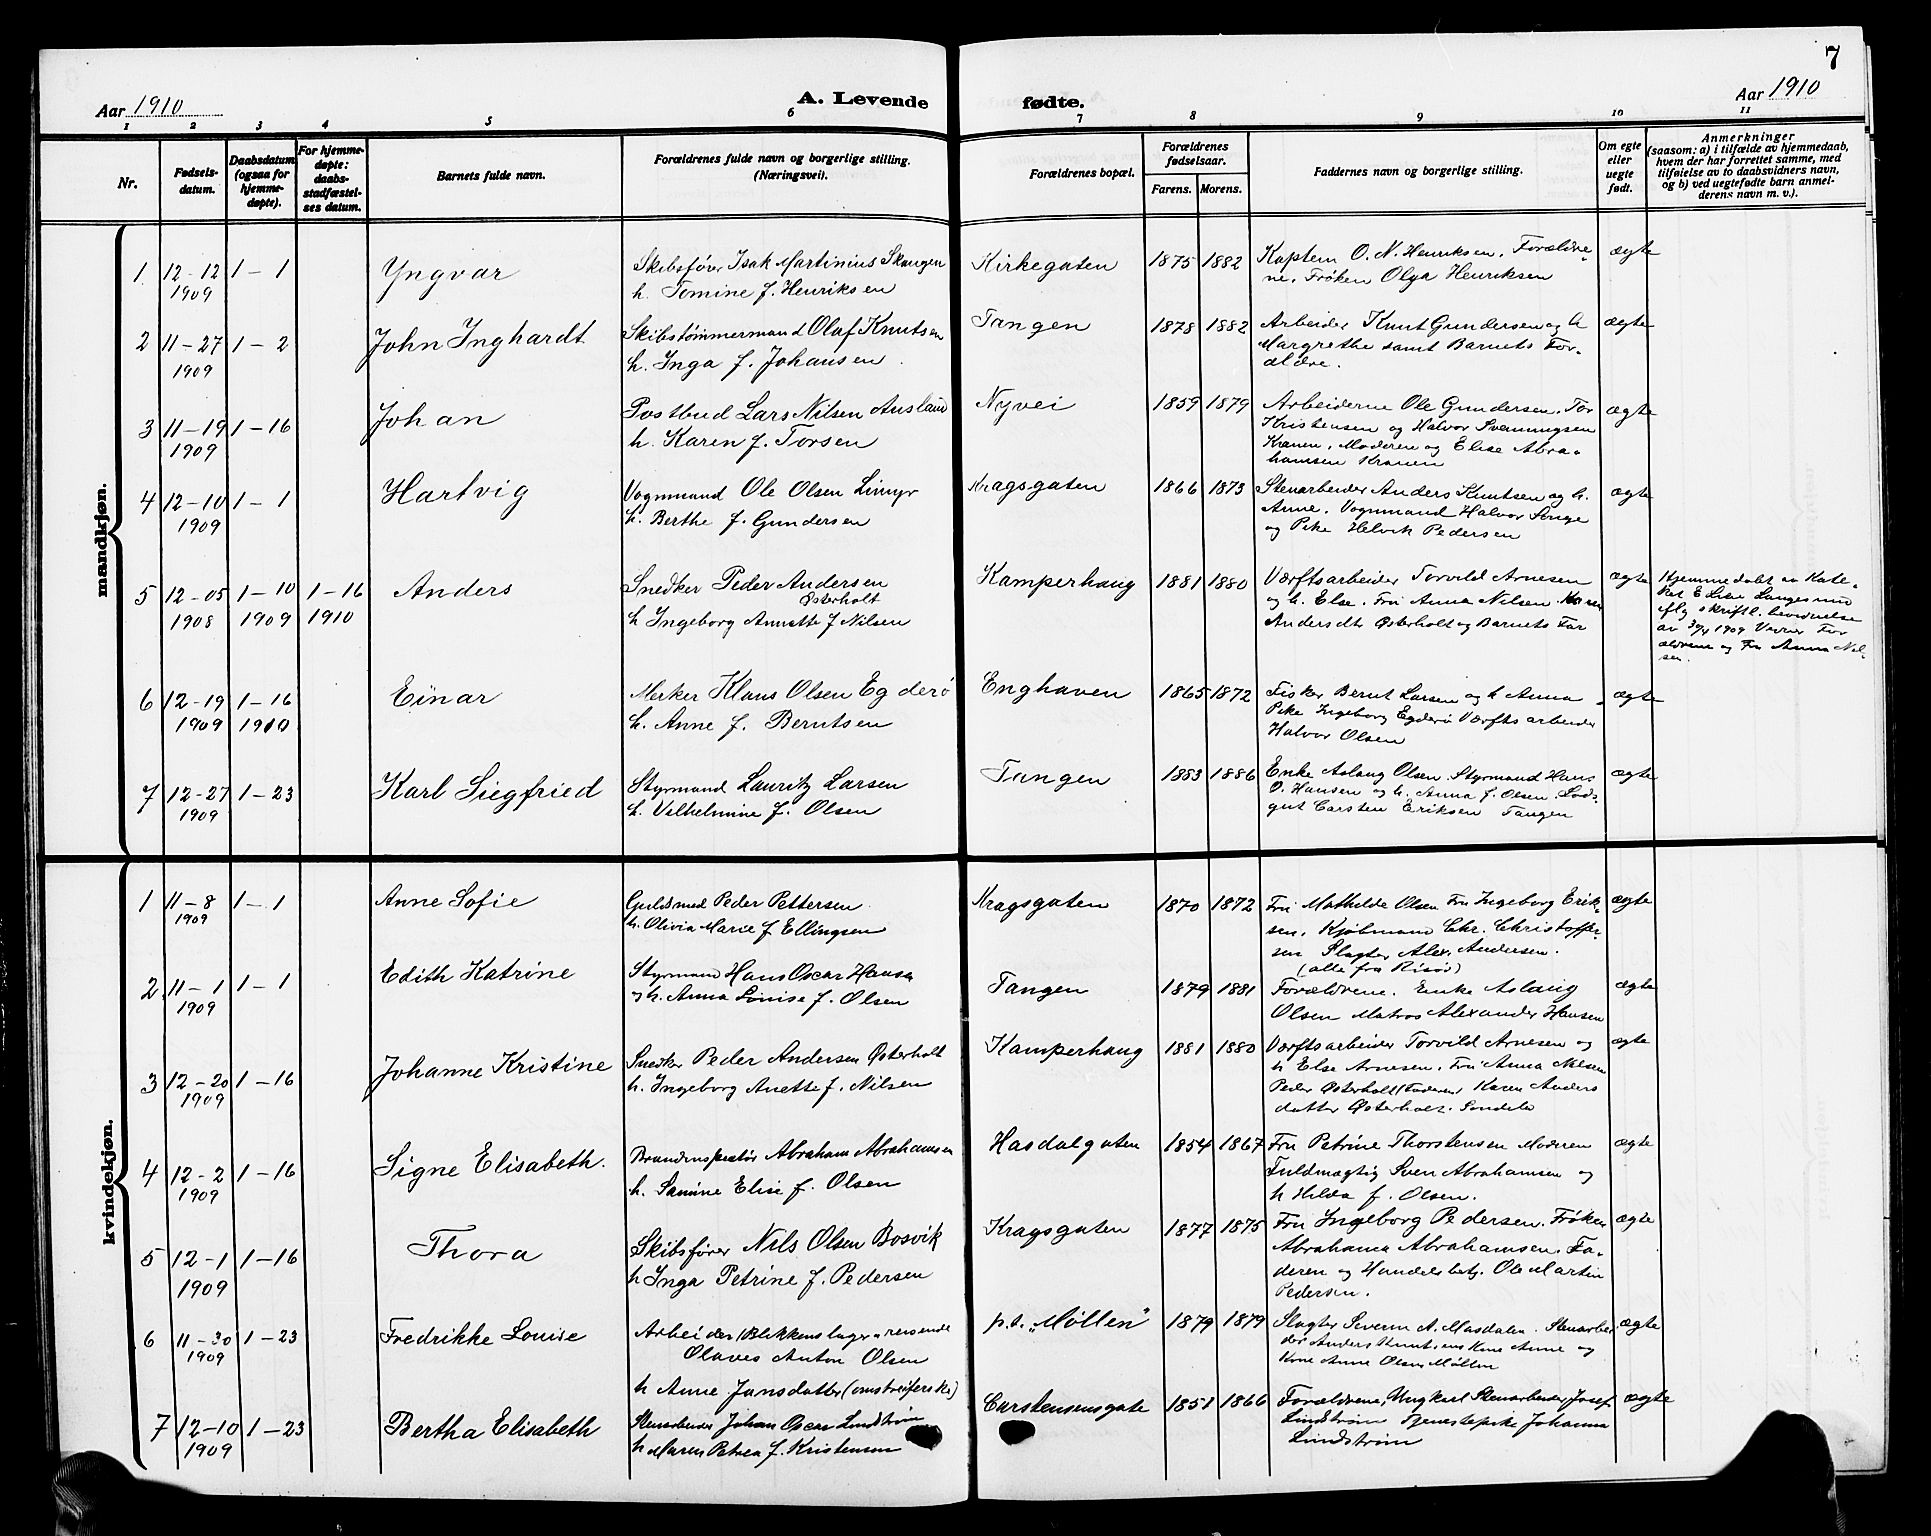 7
Aar 1910
A. Levende fødte.
Aar 1910
1 2 3 4 5 6 7 8 9 10 11
Nr.
Fødsels-
datum.
Daabsdatum
(ogsaa for
hjemme-
døpte).
For hjemme-
døpte:
daabs-
stadfæstel-
ses datum.
Barnets fulde navn.
Forældrenes fulde navn og borgerlige stilling.
(Næringsvei).
Forældrenes bopæl.
Forældrenes
fødselsaar.
Farens. Morens.
Faddernes navn og borgerlige stilling.
Om egte
eller
uegte
født.
Anmerkninger
(saasom: a) i tilfælde av hjemmedaab,
hvem der har forrettet samme, med
tilføielse av to daabsvidners navn,
og b) ved uegtefødte barn anmel-
derens navn m. v.).
mandkjøn.
1 12-12 1909 1-1 Yngvar
Skibsfører Isak Martinius Skangen
h. Tomine f. Henriksen
Kirkegaten 1875 1882
Kaptein O. N. Henriksen. Forældre-
ne. Frøken Olga Henriksen
ægte
2 11-27 1909 1-2 John Inghardt
Skibstømmermand Olaf Knutsen
h. Inga f. Johansen
Tangen 1878 1882
Arbeider Knut Gundersen og h
Margrethe samt Barnets For-
ældre.
ægte
3 11-19 1909 1-16 Johan
Postbud Lars Nilsen Ausland
h. Karen f. Torsen
Nyvei 1859 1879
Arbeiderne Ole Gundersen. Tor
Kristensen og Halvor Svenningsen
Kranen. Moderen og Elise Abra-
hamsen Kranen
ægte
4 12-10 1909 1-1 Hartvig
Vognmand Ole Olsen Limyr
h. Berthe f. Gundersen
Kragsgaten 1866 1873
Stenarbeider Anders Knutsen og h.
Anne. Vognmand Halvor Songe
og Pike Helvik Pedersen
ægte
5 12-05 1908 1-10 1909 1-16 1910 Anders
Snedker Peder Andersen
Østerholt
h Ingeborg Annette f Nilsen
Kamperhaug 1881 1880
Værftsarbeider Torvild Arnesen
og h. Else. Fru Anna Nilsen. Karen
Andersdtr Østerholt og Barnets Far
ægte
Hjemmedøbt av Kate-
ket E Lise Langesund
iflg skriftl. bevidnelse
av 1909 Vidner For
ældrene og Fru Anna Nil-
sen.
6 12-19 1909 1-16 1910 Einar
Mærker Klaus Olsen Egderø
h. Anne f. Berntsen
Enghaven 1865 1872
Fisker Bernt Larsen og h Anna
Pike Ingeborg Egderø Værftsarbeider
Halvor Olsen
ægte
7 12-27 1909 1-23 Karl Siegfried
Styrmand Lauritz Larsen
h. Vilhelmine f. Olsen
Tangen 1883 1886
Enke Aslaug Olsen. Styrmand Hans
O. Hansen og h. Anna f. Olsen. Lods-
gut Carsten Eriksen Tangen
ægte
kvindekjøn.
1 11-8 1909 1-1 Anne Sofie
Guldsmed Peder Pettersen
h. Olivia Marie f Ellingsen
Kragsgaten 1870 1872
Fru Mathilde Olsen Fru Ingeborg Erik-
sen. Kjøbmand Chr. Christoffer-
sen Slagter Alex. Andersen.
(alle fra Risør)
ægte
2 11-1 1909 1-1 Edith Katrine
Styrmand Hans Oscar Hansen
og h. Anna Louise f. Olsen
Tangen 1879 1881
Forældrene. Enke Aslaug
Olsen Matros Alexander Hansen
ægte
3 12-20 1909 1-16 Johanne Kristine
Snedker Peder Andersen Østerholt
h. Ingeborg Anette f. Nilsen
Kamperhaug 1881 1880
Værftsarbeider Torvild Arnesen og
h Else Arnesen. Fru Anna Nilsen
Peder Østerholt (Faderen) Karen Anders
datter Østerholt. Søndeled
ægte
4 12-2 1909 1-16 Signe Elisabeth.
Brandinspektør Abraham Abrahamsen
h. Samine Elise f. Olsen
Hasdalgaten 1854 1867
Fru Petrine Thorstensen Moderen
Fuldmægtig Sven Abrahamsen og
h Hilda f. Olsen.
ægte
5 12-1 1909 1-16 Thora
Skibsfører Nils Olsen Bosvik
h Inga Petrine f. Pedersen
Kragsgaten 1877 1875
Fru Ingeborg Pedersen. Frøken
Abrahama Abrahamsen. Fa-
deren og Handelsbetj. Ole Martin
Pedersen.
ægte
6 11-30 1909 1-23 Fredrikke Louise
Arbeider (Blikkenslager) reisende
Olaves Anton Olsen
h Anne Jansdatter (omstreiferske)
p.t. „Møllen" 1879 1879
Slagter Severin A. Masdalen. Stenarbei
der Anders Knutsens Kone Anne og
Kone Anne Olsen Møllen
ægte
7 12-10 1909 1-23 Bertha Elisabeth
Stenarbeider Johan Oscar Lindstrøm
h Maren Petrea f. Kristensen
Carstensensgate 1851 1866
Forældrene, Ungkarl Stenarbeider Josef
Lindstrøm Tjenestepike Johanna
Lindstrøm
ægte